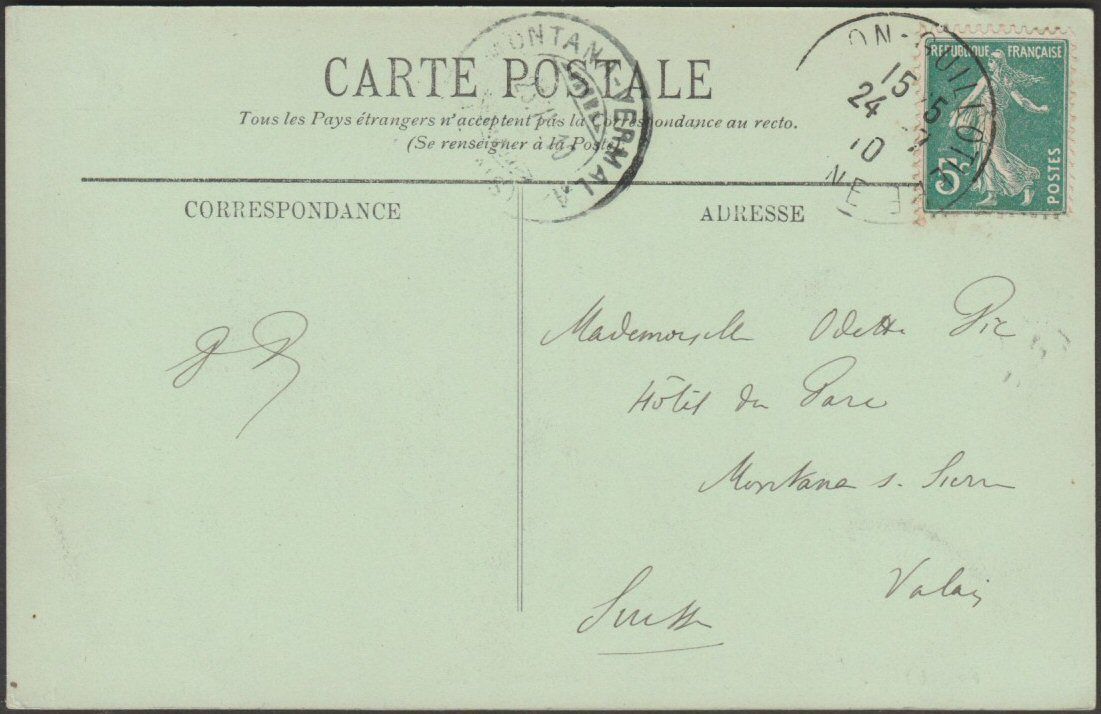 CARTE POSTALE
Tous les Pays étrangers n'acceptent pas la Correspondance au recto.
(Se renseigner à la Poste)
MONTANA-VERMALA
VIII
ON-GUILLOTI
15
24
10
NE
REPUBLIQUE FRANÇAISE
5c
POSTES
CORRESPONDANCE
ADRESSE
Mademoiselle Odette Pic
Hôtel du Parc
Montana s. Sierre
Valais
Suisse